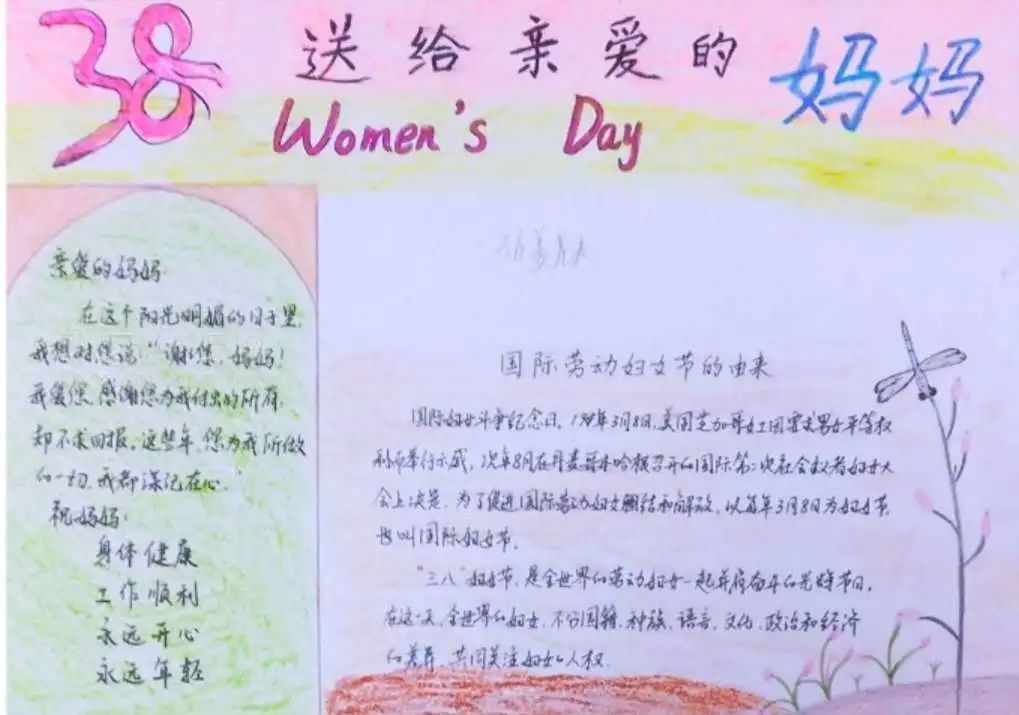 38
送给亲爱的
妈妈
Women's Day
亲爱的妈妈:
在这个阳光明媚的日子里,
我想对您说:“谢谢您,妈妈!
我爱您,感谢您为我付出的所有,
却不求回报。这些年,您为我所做
的一切,我都深记在心。”
祝妈妈:
身体健康
工作顺利
永远开心
永远年轻
国际劳动妇女节的由来
国际妇女斗争纪念日。1909年3月8日,美国芝加哥女工因要求男女平等权
利而举行示威,次年8月在丹麦哥本哈根召开的国际第二次社会主义者妇女大
会上决定,为了促进国际劳动妇女团结和解放,以每年3月8日为妇女节,
也叫国际妇女节。
“三八”妇女节,是全世界的劳动妇女一起并肩奋斗的光辉节日。
在这一天,全世界的妇女,不分国籍、种族、语言、文化、政治和经济
的差异,共同关注妇女人权。